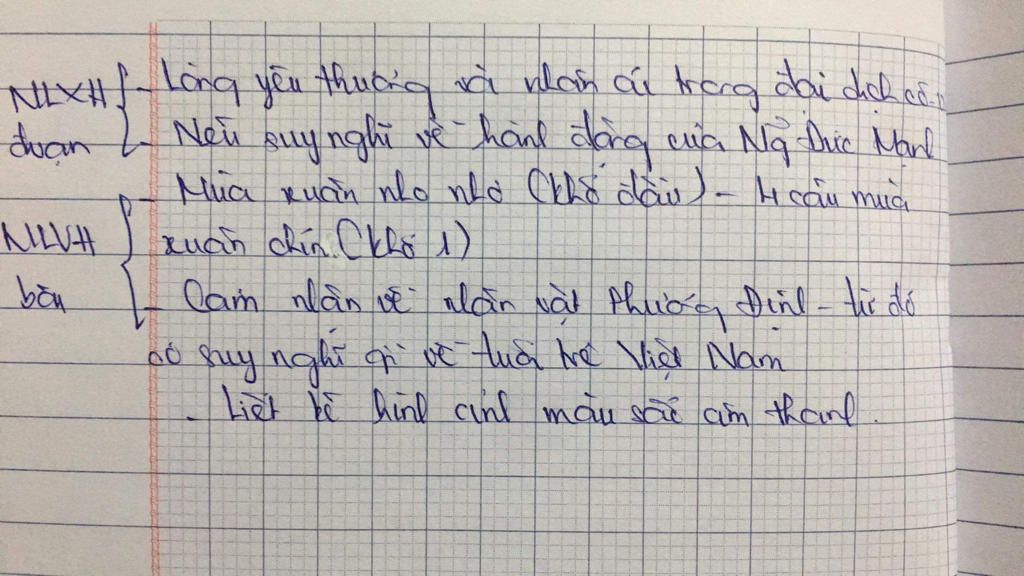 - Lòng yêu thương và nhân ái trong đại dịch cô-
NLXH
- Nêu suy nghĩ về hành động của Ng Đức Mạnh
đoạn
- Mùa xuân nho nhỏ (khổ đầu) - 4 câu mùa
NLVH
xuân chín. (khổ 1)
bài
- Cảm nhận về nhân vật Phương Định - từ đó
có suy nghĩ gì về tuổi trẻ Việt Nam
. Liệt kê hình ảnh màu sắc âm thanh.